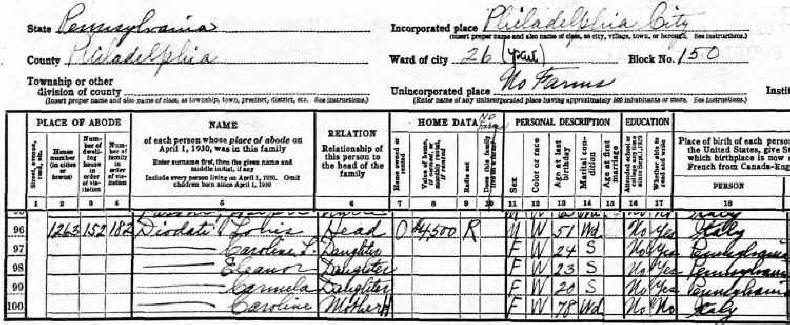 State Pennsylvania Incorporated place Philadelphia City
(Insert proper name and also name of class, as city, village, town, or borough. See instructions.)
County Philadelphia Ward of city 26 (part) Block No. 150
Township or other
division of county Unincorporated place No Farms
(Insert proper name and also name of class, as township, town, precinct, district, etc. See instructions.) (Enter name of any unincorporated place having approximately 500 inhabitants or more. See instructions.) Insti
PLACE OF ABODE NAME RELATION HOME DATA No PERSONAL DESCRIPTION EDUCATION
of each person whose place of abode on
April 1, 1930, was in this family
Enter surname first, then the given name and
middle initial, if any
Include every person living on April 1, 1930. Omit
children born since April 1, 1930
House number (in cities or towns)
Number of dwelling house in order of visitation
Number of family in order of visitation
Relationship of this person to the head of the family
Home owned or rented
Value of home, if owned, or monthly rental, if rented
Radio set
Does this family
Sex
Color or race
Age at last birthday
Marital condition
Age at first marriage
Attended school or college any time since Sept. 1, 1929
Whether able to read and write
Place of birth of each perso
the United States, give St
which birthplace is now s
French from Canada-Eng
PERSON
1 2 3 4 5 6 7 8 9 10 11 12 13 14 15 16 17 18
Italy
96 1263 152 182 Diodati Louis Head O $4,500 R M W 51 Wd No Yes Italy
97 Caroline L. Daughter F W 24 S No Yes Pennsylvania
98 Eleanor Daughter F W 23 S No Yes Pennsylvania
99 Carmela Daughter F W 20 S No Yes Pennsylvania
100 Caroline Mother F W 78 Wd No No Italy